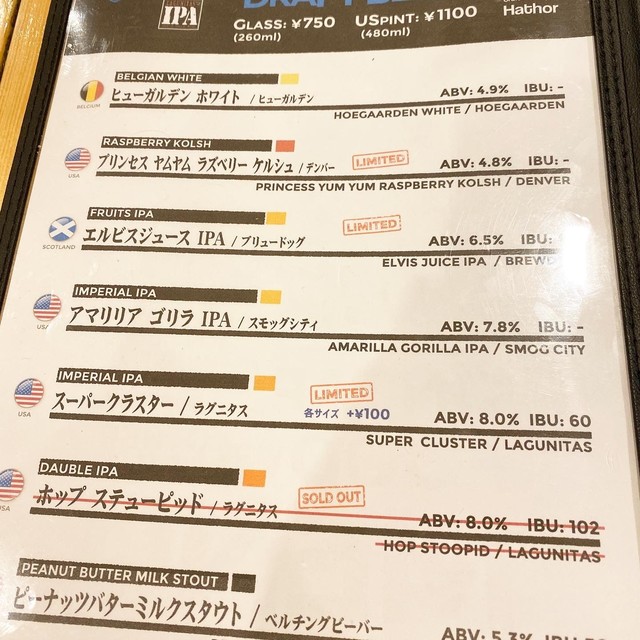 IPA
GLASS: ¥750 USPINT: ¥1100
(260ml) (480ml)
Hathor
BELGIAN WHITE
BELGIUM
ヒューガルデン ホワイト / ヒューガルデン
ABV: 4.9% IBU: -
HOEGAARDEN WHITE / HOEGAARDEN
RASPBERRY KOLSH
USA
プリンセス ヤムヤム ラズベリー ケルシュ / デンバー
LIMITED
ABV: 4.8% IBU: -
PRINCESS YUM YUM RASPBERRY KOLSH / DENVER
FRUITS IPA
SCOTLAND
エルビスジュース IPA / ブリュードッグ
LIMITED
ABV: 6.5% IBU:
ELVIS JUICE IPA /
IMPERIAL IPA
USA
アマリリア ゴリラ IPA / スモッグシティ
ABV: 7.8% IBU: -
AMARILLA GORILLA IPA / SMOG CITY
IMPERIAL IPA
USA
スーパークラスター / ラグニタス
LIMITED
各サイズ +¥100
ABV: 8.0% IBU: 60
SUPER CLUSTER / LAGUNITAS
DAUBLE IPA
USA
ホップ ステューピッド / ラグニタス
SOLD OUT
ABV: 8.0% IBU: 102
HOP STOOPID / LAGUNITAS
PEANUT BUTTER MILK STOUT
ピーナッツバターミルクスタウト / ベルチングビーバー
ABV: 5.3%